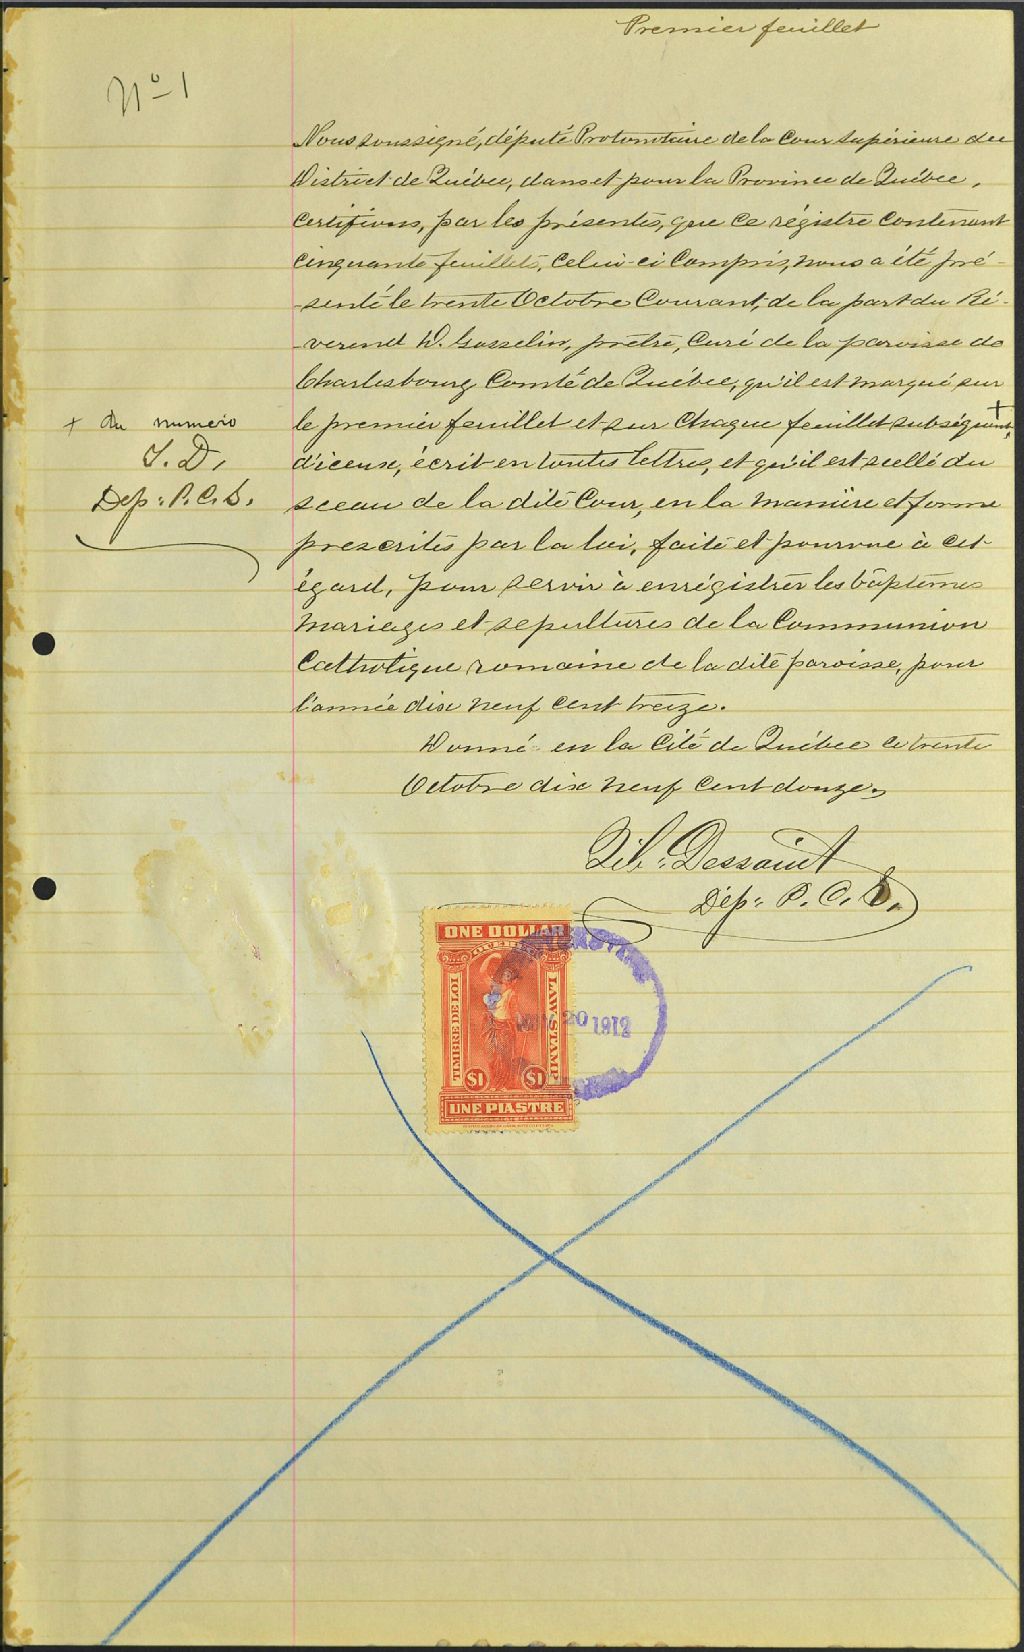 Premier feuillet
No 1
Nous soussigné, député Protonotaire de la Cour Supérieure du
District de Québec, dans et pour la Province de Québec,
certifions, par les présentes, que ce régistre contenant
cinquante feuillets, celui-ci compris, nous a été pré-
-senté le trente Octobre Courant, de la part du Ré-
-verend D. Gosselin, prêtre, curé de la paroisse de
Charlesbourg Comté de Québec, qu'il est marqué sur
le premier feuillet et sur chaque feuillet subséquent, +
+ du numéro
T. D,
Dep: P. C. S.
d'iceux, écrit en toutes lettres, et qu'il est scellé du
sceau de la dite Cour, en la manière et forme
prescrites par la loi, faite et pourvue à cet
égard, pour servir à enrégistrer les bâptèmes
mariages et sepultures de la Communion
Catholique romaine de la dite paroisse, pour
l'année dix neuf cent treize.
Donné en la Cité de Québec ce trente
Octobre dix neuf cent douze.
Dessaint
Dép: P. C. S.
ONE DOLLAR
QUEBEC
TIMBRE DE LOI
LAW STAMP
$1 $1
UNE PIASTRE
NOV 20 1912